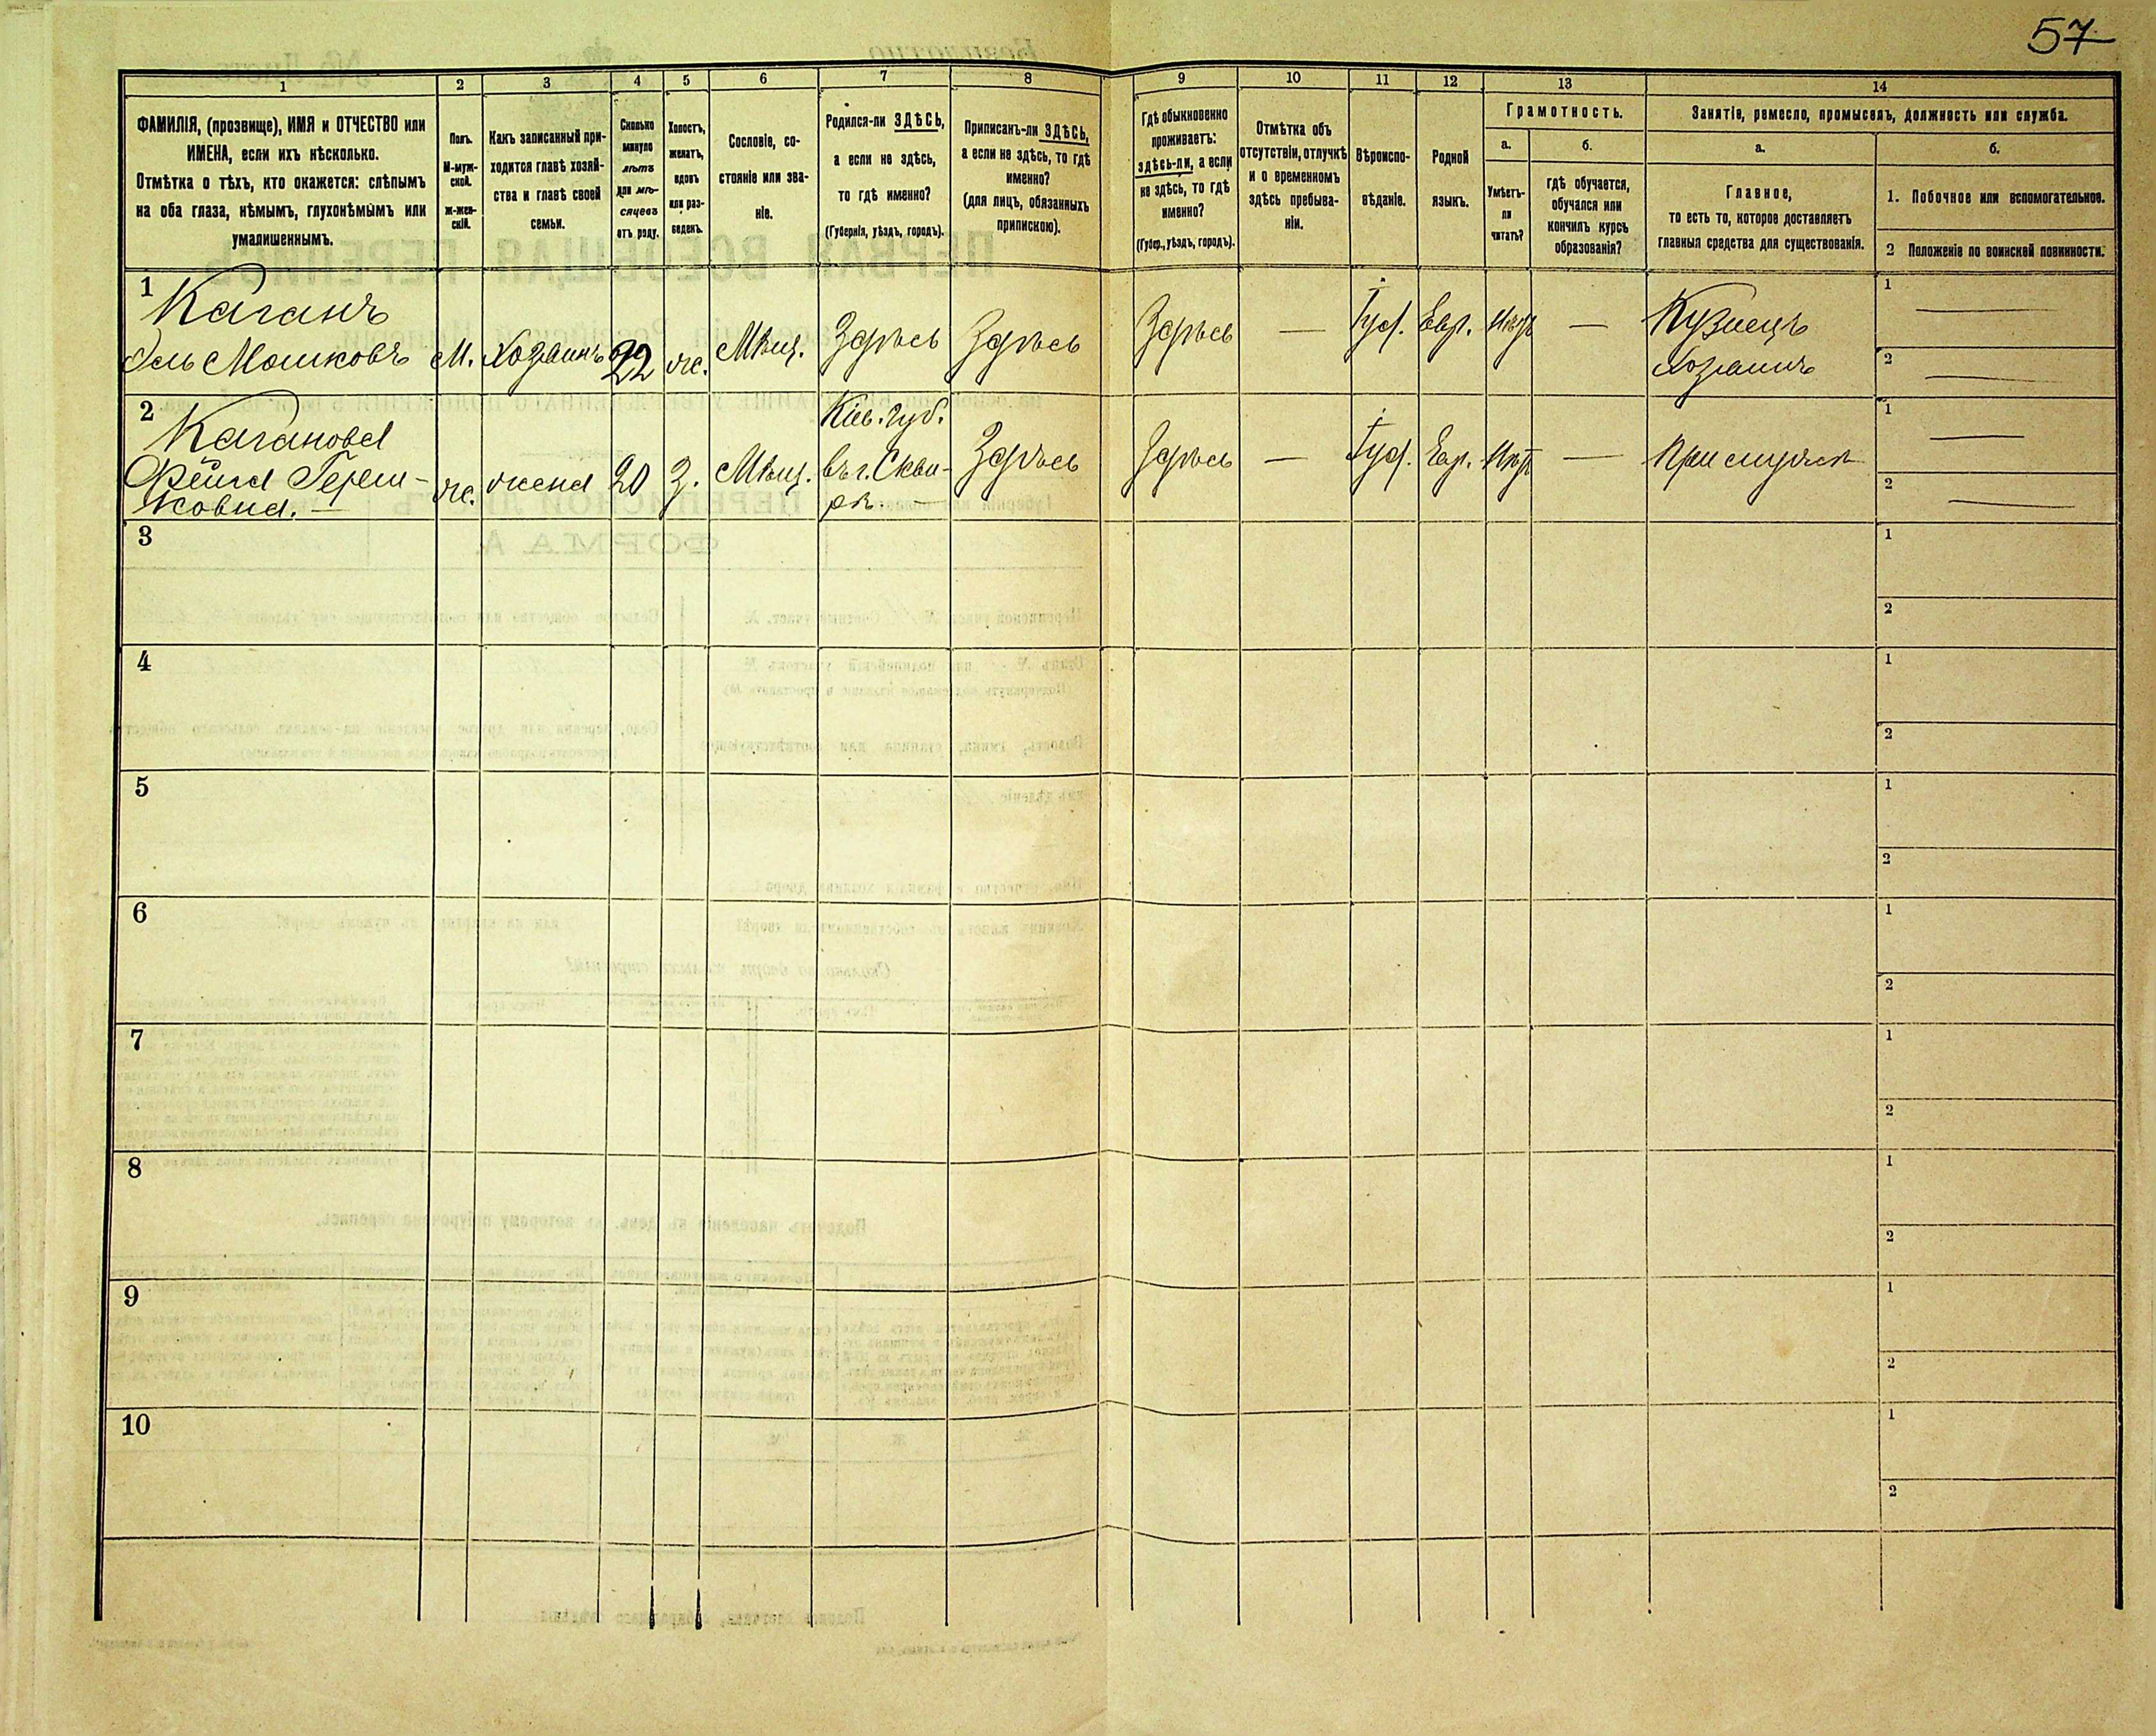 57
1 2 3 4 5 6 7 8 9 10 11 12 13 14
ФАМИЛІЯ, (прозвище), ИМЯ и ОТЧЕСТВО или
ИМЕНА, если ихъ нѣсколько.
Отмѣтка о тѣхъ, кто окажется: слѣпымъ
на оба глаза, нѣмымъ, глухонѣмымъ или
умалишеннымъ.
Полъ.
М-муж-
ской.
Ж-жен-
скій.
Какъ записанный при-
ходится главѣ хозяй-
ства и главѣ своей
семьи.
Сколько
минуло
лѣтъ
или мѣ-
сяцевъ
отъ роду.
Холостъ,
женатъ,
вдовъ
или раз-
веденъ.
Сословіе, со-
стояніе или зва-
ніе.
Родился-ли ЗДѢСЬ,
а если не здѣсь,
то гдѣ именно?
(Губернія, уѣздъ, городъ).
Приписанъ-ли ЗДѢСЬ,
а если не здѣсь, то гдѣ
именно?
(для лицъ, обязанныхъ
припискою).
Гдѣ обыкновенно
проживаетъ:
здѣсь-ли, а если
не здѣсь, то гдѣ
именно?
(Губер., уѣздъ, городъ).
Отмѣтка объ
отсутствіи, отлучкѣ
и о временномъ
здѣсь пребыва-
ніи.
Вѣроиспо-
вѣданіе.
Родной
языкъ.
Грамотность.
а.
Умѣетъ-
ли
читать?
б.
гдѣ обучается,
обучался или
кончилъ курсъ
образованія?
Занятіе, ремесло, промыселъ, должность или служба.
а.
Главное,
то есть то, которое доставляетъ
главныя средства для существованія.
б.
1. Побочное или вспомогательное.
2 Положеніе по воинской повинности.
1
Каганъ
Эль Мошковъ М. Хозяинъ 22 ж. Мѣщ. Здѣсь Здѣсь Здѣсь — Іуд. Евр. Нѣтъ — Кузнецъ
Хозяинъ
1 —
2 —
2
Каганова
Фейга Герш-
ковна. — ж. жена 20 З. Мѣщ. Кіев. губ.
въ г. Скви-
рѣ. — Здѣсь Здѣсь — Іуд. Евр. Нѣтъ — При мужѣ
1 —
2 —
3
1
2
4
1
2
5
1
2
6
1
2
7
1
2
8
1
2
9
1
2
10
1
2